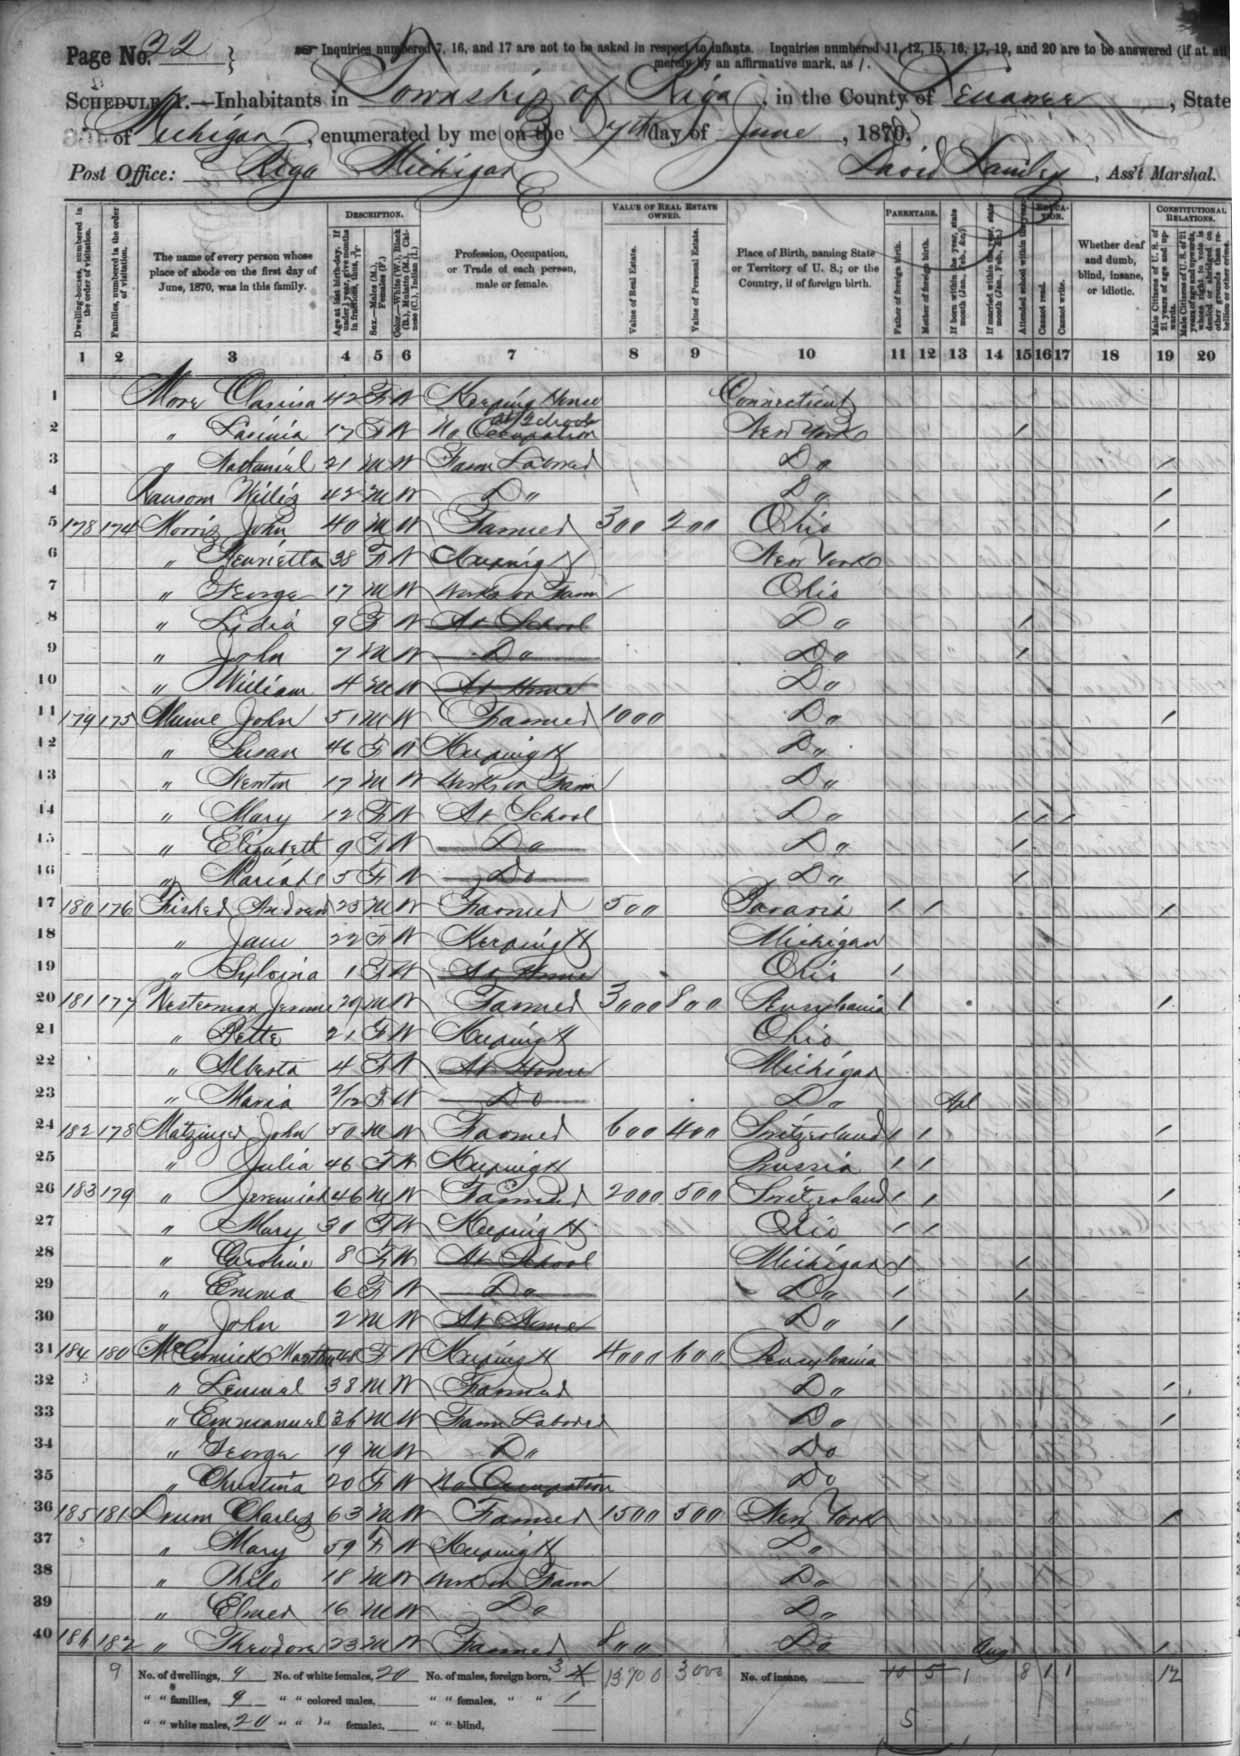 Page No. 32
Inquiries numbered 7, 16, and 17 are not to be asked in respect to infants. Inquiries numbered 11, 12, 15, 16, 17, 19, and 20 are to be answered (if at all)
merely by an affirmative mark, as /.
SCHEDULE 1.—Inhabitants in Township of Riga, in the County of Lenawee, State
of Michigan, enumerated by me on the 7th day of June, 1870.
Post Office: Riga Michigan David, Ass't Marshal.
DESCRIPTION. VALUE OF REAL ESTATE OWNED. PARENTAGE. EDUCATION. CONSTITUTIONAL RELATIONS.
Dwelling-houses, numbered in the order of visitation. Families, numbered in the order of visitation. The name of every person whose place of abode on the first day of June, 1870, was in this family. Age at last birth-day. If under 1 year, give months in fractions, thus, 3/12 Sex.—Males (M.), Females (F.) Color.—White (W.), Black (B.), Mulatto (M.), Chinese (C.), Indian (I.) Profession, Occupation, or Trade of each person, male or female. Value of Real Estate. Value of Personal Estate. Place of Birth, naming State or Territory of U. S.; or the Country, if of foreign birth. Father of foreign birth. Mother of foreign birth. If born within the year, state month (Jan., Feb., &c.) If married within the year, state month (Jan., Feb., &c.) Attended school within the year. Cannot read. Cannot write. Whether deaf and dumb, blind, insane, or idiotic. Male Citizens of U. S. of 21 years of age and upwards. Male Citizens of U. S. of 21 years of age and upwards, whose right to vote is denied or abridged on other grounds than rebellion or other crime.
1 2 3 4 5 6 7 8 9 10 11 12 13 14 15 16 17 18 19 20
1 More Clarisa 42 F W Keeping House Connecticut
2 " Lavinia 17 F W No Occupation at School New York /
3 " Nathaniel 21 M W Farm Laborer Do /
4 Ransom Willis 42 M W Do " Do " /
5 178 174 Morris John 40 M W Farmer 300 200 Ohio /
6 " Henrietta 38 F W Keeping H New York
7 " George 17 M W Works on Farm Ohio
8 " Lidia 9 F W At School Do " /
9 " John 7 M W Do " Do " /
10 " William 4 M W At Home Do "
11 179 175 John 51 M W Farmer 1000 Do " /
12 " Susan 46 F W Keeping H Do "
13 " Newton 17 M W Works on Farm Do "
14 " Mary 12 F W At School Do " / / /
15 " Elizabeth 9 F W Do " Do " /
16 " Mariah 5 F W Do Do " /
17 180 176 Fisher Andrew 25 M W Farmer 500 Bavaria / / /
18 " Jane 22 F W Keeping H Michigan
19 " Sylvina 1 F W At Home Ohio /
20 181 177 Westerman Jerome 29 M W Farmer 3000 800 Pensylvania / /
21 " Bette 21 F W Keeping H Ohio
22 " Alberta 4 F W At Home Michigan
23 " Maria 2/12 F W Do Do " Apl
24 182 178 Matzinger John 50 M W Farmer 600 400 Switzerland / / /
25 " Julia 46 F W Keeping H / /
26 183 179 " Jeremiah 46 M W Farmer 2000 500 Switzerland / / /
27 " Mary 30 F W Keeping H Ohio / /
28 " Caroline 8 F W At School Michigan / /
29 " Emma 6 F W Do " Do " / /
30 " John 2 M W At Home Do " /
31 184 180 McCormick Martha F W Keeping H 4000 600 Pensylvania
32 " Lemuel 38 M W Farmer Do " /
33 " Emmanuel 36 M W Farm Laborer Do " /
34 " George 19 M W Do " Do
35 " Christina 20 F W No Occupation Do
36 185 181 Drum Charles 63 M W Farmer 1500 500 New York /
37 " Mary 59 F W Keeping H Do "
38 " Philo 18 M W Work on Farm Do
39 " Elmer 16 M W Do Do "
40 186 182 " Theodore 23 M W Farmer 800 Do Aug /
9 No. of dwellings, 9 No. of white females, 20 No. of males, foreign born, 3 4 13700 3000 No. of insane, 10 5 1 8 1 1 12
" " families, 9 " " colored males, " " females, " " 1
" " white males, 20 " " " females, " " blind, 5